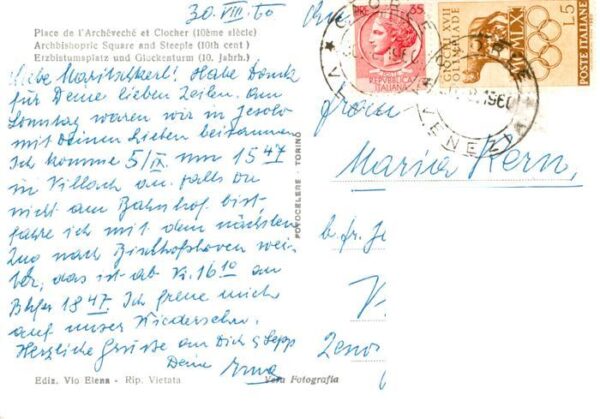 30.VIII.60
Place de l'Archêveché et Clocher (10ème siècle)
Archbishopric Square and Steeple (10th cent)
Erzbistumsplatz und Glockenturm (10. Jahrh.)
Liebe Maritschkerl! Habe Dank
für Deine lieben Zeilen. Am
Sonntag waren wir in Jesolo
mit Deinen Lieben beisammen
Ich komme 5/IX um 15 47
in Villach an. Falls Du
nicht am Bahnhof bist
fahre ich mit dem nächsten
Zug nach Bischofshofen wei-
ter, das ist ab Vi. 16 10 an
Bhfen 18 47. Ich freue mich
auf unser Wiedersehn.
Herzliche Grüße an Dich & Sepp
Deine Erna
Ediz. Vio Elena - Rip. Vietata
Vera Fotografia
FOTOCELERE - TORINO
35
REPVBBLICA
ITALIANA
GIOCHI DELLA XVII
OLIMPIADE
ROMA MCMLX
L5
POSTE ITALIANE
CAORLE
VENEZIA
1960
Frau
Maria Kern,
b. fr. Je
V
Zeno